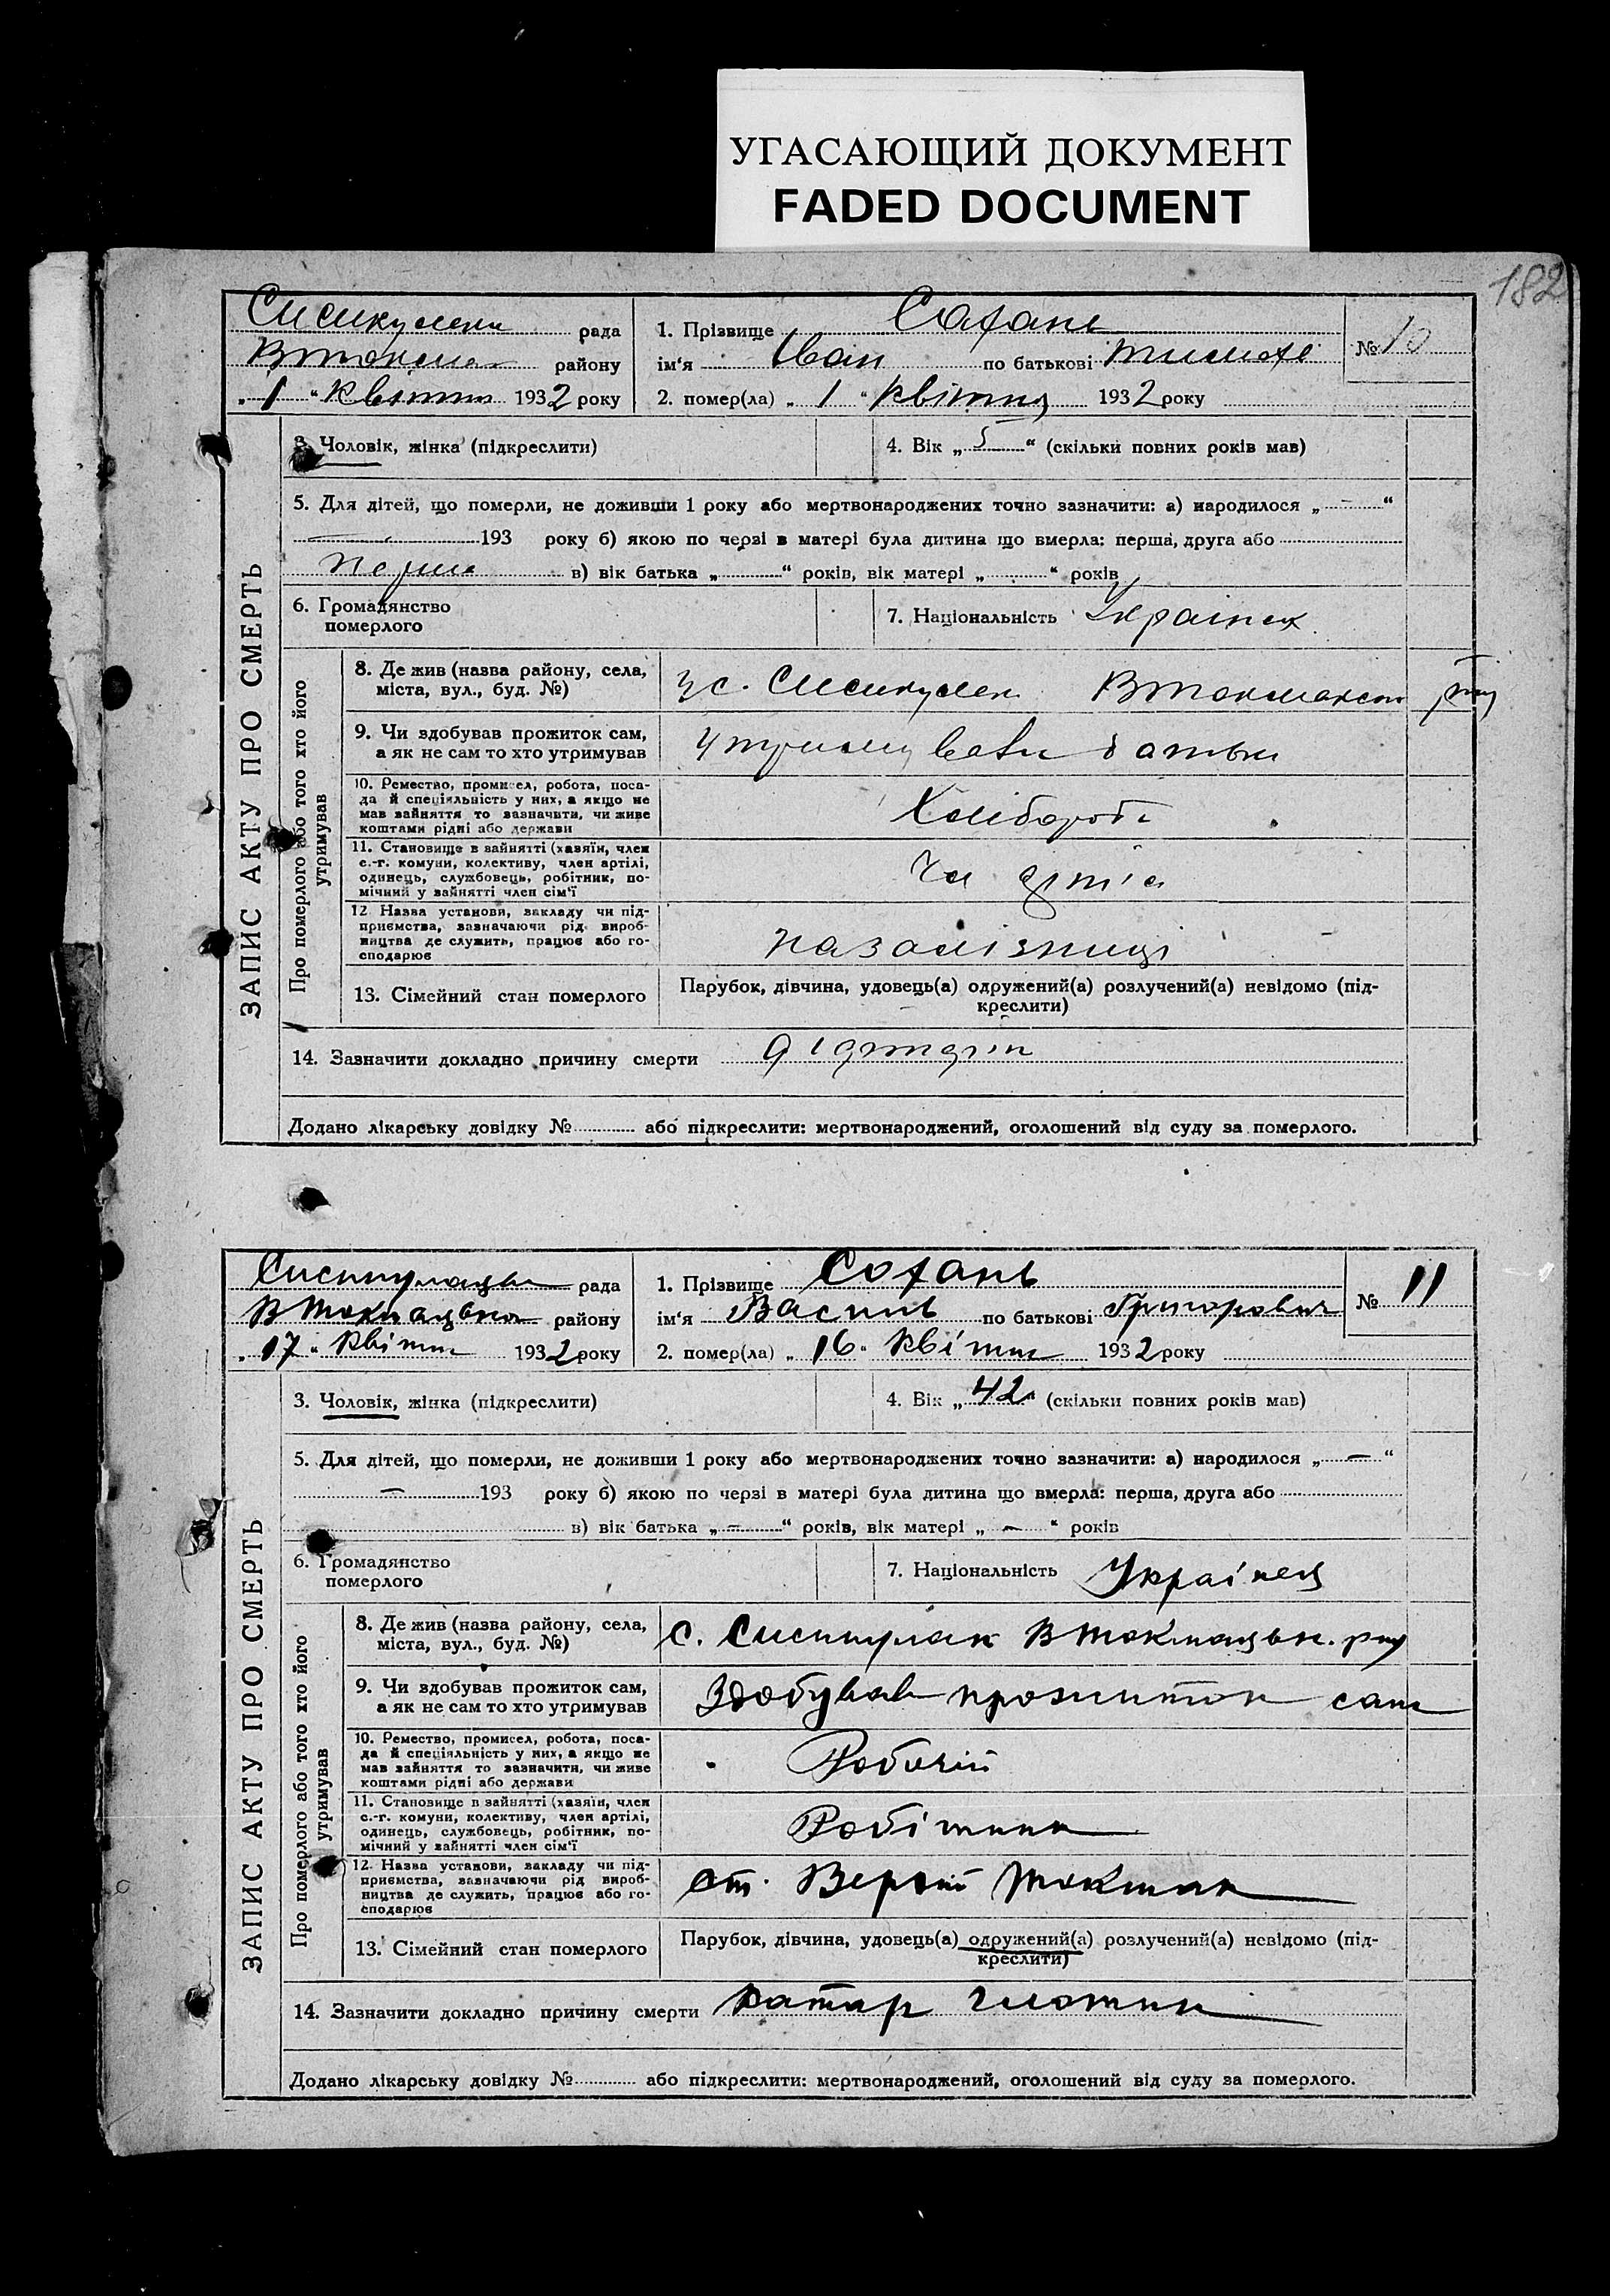 УГАСАЮЩИЙ ДОКУМЕНТ
FADED DOCUMENT
182
рада
1. Прізвище Сохань
№ 10
району
ім'я Іван по батькові
„ 1 “ 1932 року
2. помер(ла) „ 1 “ квітня 1932 року
ЗАПИС АКТУ ПРО СМЕРТЬ
3. Чоловік, жінка (підкреслити)
4. Вік „ 5 “ (скільки повних років мав)
5. Для дітей, що померли, не доживши 1 року або мертвонароджених точно зазначити: а) народилося „ — “
— 193 року б) якою по черзі в матері була дитина що вмерла: перша, друга або
в) вік батька „ “ років, вік матері „ “ років
6. Громадянство
померлого
7. Національність Українец
Про померлого або того хто його
утримував
8. Де жив (назва району, села,
міста, вул., буд. №)
9. Чи здобував прожиток сам,
а як не сам то хто утримував
батьки
10. Ремество, промисел, робота, поса-
да й спеціяльність у них, а якщо не
мав зайняття то зазначити, чи живе
коштами рідні або держави
Хлібороб
11. Становище в зайнятті (хазяїн, член
с.-г. комуни, колективу, член артілі,
одинець, службовець, робітник, по-
мічний у зайнятті член сім'ї
12 Назва установи, закладу чи під-
приємства, зазначаючи рід вироб-
ництва де служить, працює або го-
сподарює
на залізниці
13. Сімейний стан померлого
Парубок, дівчина, удовець(а) одружений(а) розлучений(а) невідомо (під-
креслити)
14. Зазначити докладно причину смерти
Додано лікарську довідку № або підкреслити: мертвонароджений, оголошений від суду за померлого.
рада
1. Прізвище Сохань
№ 11
району
ім'я Василь по батькові Григорович
„ 17 “ 1932 року
2. помер(ла) „ 16 “ 1932 року
ЗАПИС АКТУ ПРО СМЕРТЬ
3. Чоловік, жінка (підкреслити)
4. Вік „ 42 “ (скільки повних років мав)
5. Для дітей, що померли, не доживши 1 року або мертвонароджених точно зазначити: а) народилося „ — “
— 193 року б) якою по черзі в матері була дитина що вмерла: перша, друга або
в) вік батька „ — “ років, вік матері „ — “ років
6. Громадянство
померлого
7. Національність Українец
Про померлого або того хто його
утримував
8. Де жив (назва району, села,
міста, вул., буд. №)
с.
9. Чи здобував прожиток сам,
а як не сам то хто утримував
Здобував прожиток сам
10. Ремество, промисел, робота, поса-
да й спеціяльність у них, а якщо не
мав зайняття то зазначити, чи живе
коштами рідні або держави
Робочій
11. Становище в зайнятті (хазяїн, член
с.-г. комуни, колективу, член артілі,
одинець, службовець, робітник, по-
мічний у зайнятті член сім'ї
Робітник
12. Назва установи, закладу чи під-
приємства, зазначаючи рід вироб-
ництва де служить, працює або го-
сподарює
ст. Токмак
13. Сімейний стан померлого
Парубок, дівчина, удовець(а) одружений(а) розлучений(а) невідомо (під-
креслити)
14. Зазначити докладно причину смерти
Додано лікарську довідку № або підкреслити: мертвонароджений, оголошений від суду за померлого.